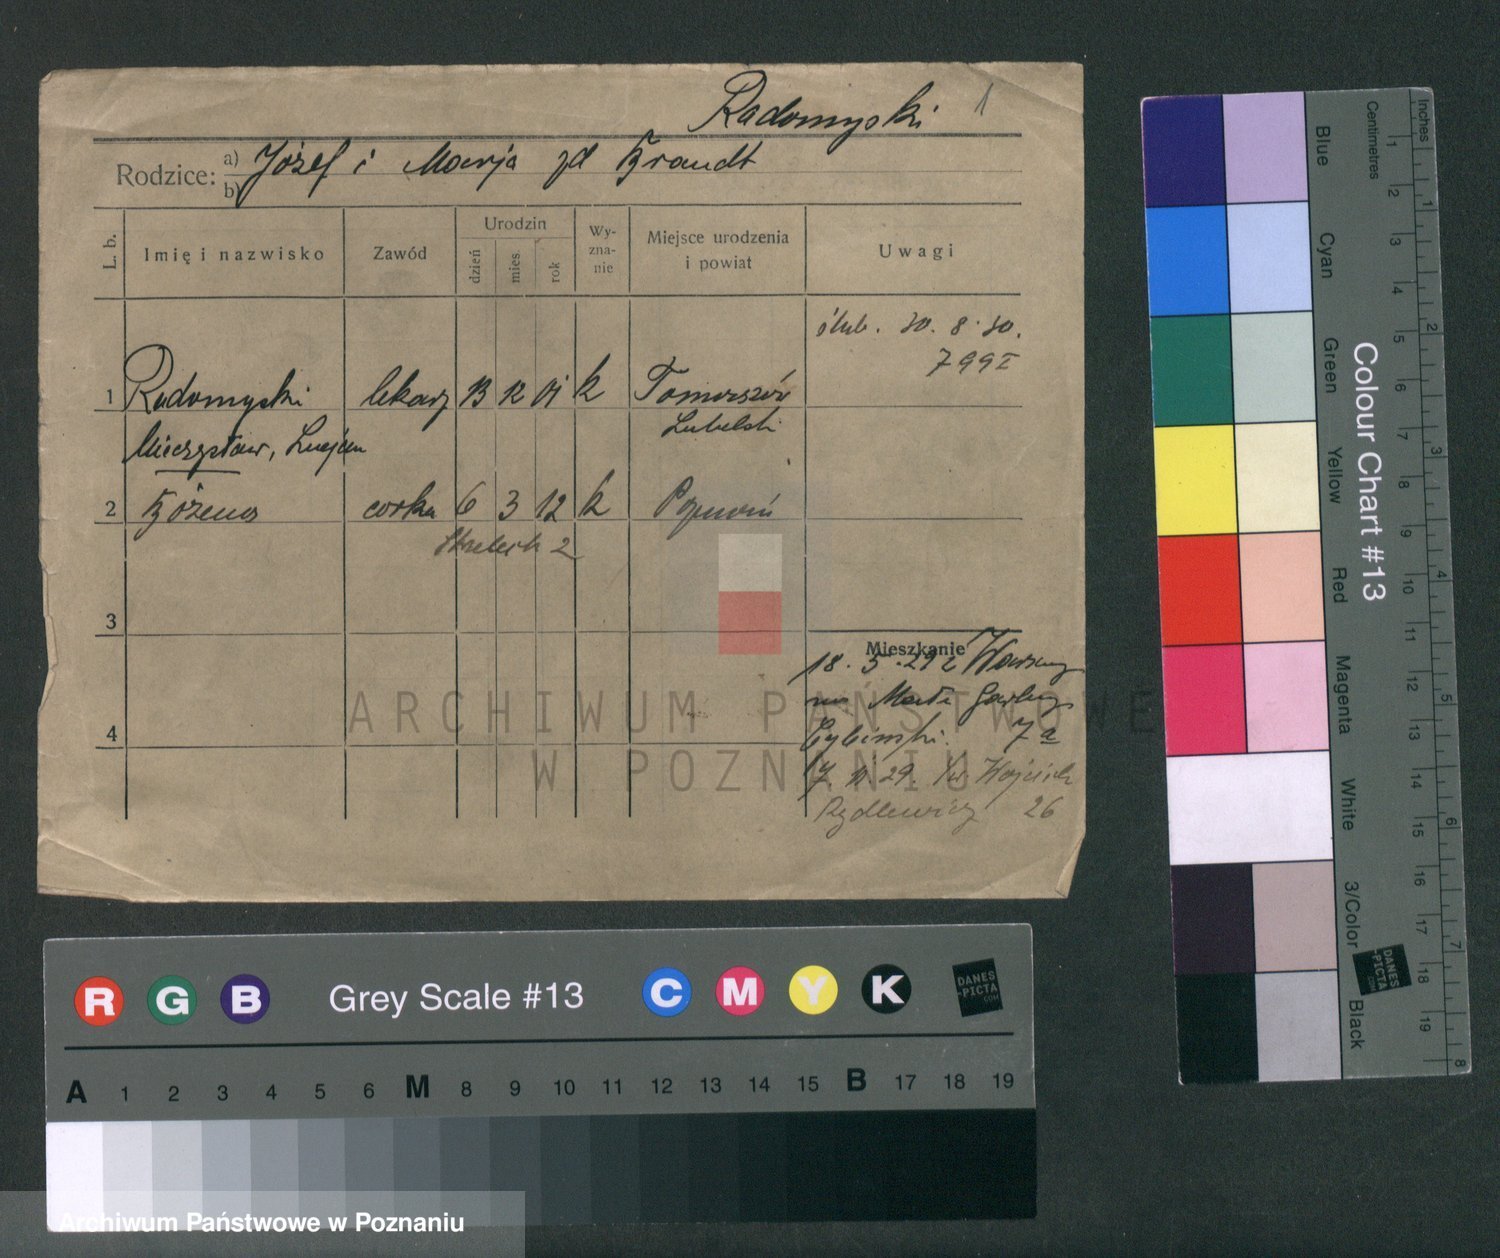 Radomyski 1
Rodzice: a) Józef i Marja zd Brandt
b)
L. b.
Imię i nazwisko
Zawód
Urodzin
dzień
mies
rok
Wy-
zna-
nie
Miejsce urodzenia
i powiat
Uwagi
ślub. 30. 8. 30.
799 I
1 Radomyski lekarz 13 12 01 k Tomaszów
Lubelski
Mieczysław, Lucjan
2 Bożena corka 6 3 12 k Poznań
Strzelecka 2
3
Mieszkanie
18. 5. 29 z Warszawy
7a
4
29. Wojciech
Rydlewicz 26
ARCHIWUM PAŃSTWOWE
W POZNANIU
Blue
Cyan
Green
Yellow
Red
Magenta
White
3/Color
Black
Colour Chart #13
Centimetres
1 2 3 4 5 6 7 8 9 10 11 12 13 14 15 16 17 18 19
Inches
1 2 3 4 5 6 7 8
DANES
-PICTA
.COM
R G B Grey Scale #13 C M Y K
DANES
-PICTA
.COM
A 1 2 3 4 5 6 M 8 9 10 11 12 13 14 15 B 17 18 19
Archiwum Państwowe w Poznaniu